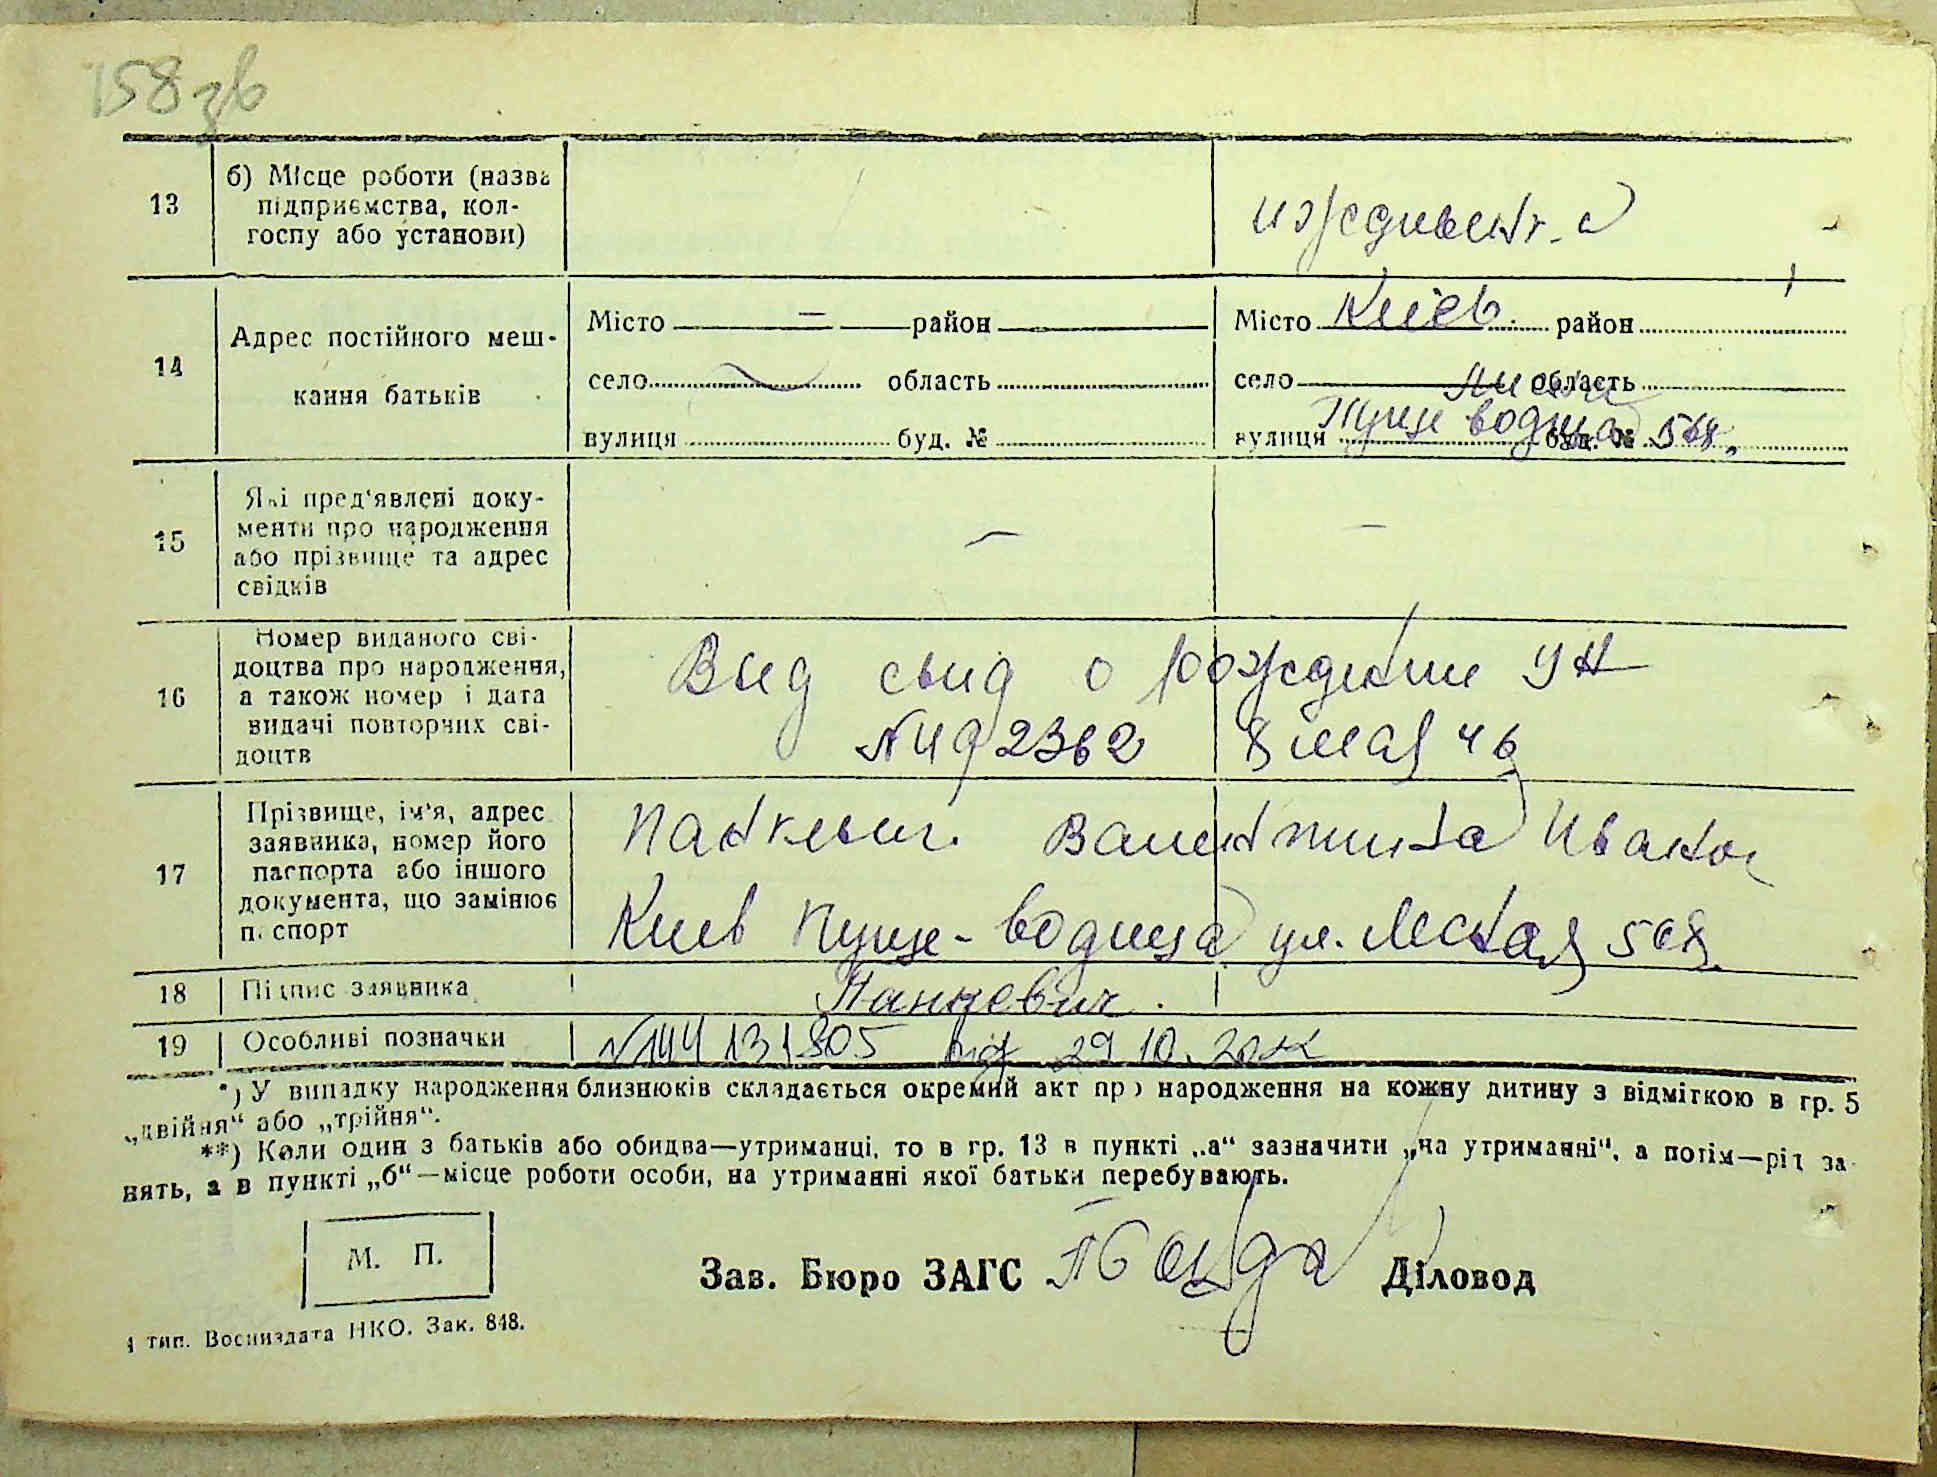 158 зв
13
б) Місце роботи (назва
підприємства, кол-
госпу або установи)
иждивент.
14
Адрес постійного меш-
кання батьків
Місто — район
село область
вулиця буд. №
Місто Киев. район
село область
вулиця Пуще водица буд. № 568.
15
Які пред'явлені доку-
менти про народження
або прізвище та адрес
свідків
—
—
16
Номер виданого сві-
доцтва про народження,
а також номер і дата
видачі повторних сві-
доцтв
Выд свид о рождении УН
8 мая 46
17
Прізвище, ім'я, адрес
заявника, номер його
паспорта або іншого
документа, що замінює
паспорт
Панкевич. Валентина Иванов
Киев Пуще-водица ул. Лесная 568.
18
Підпис заявника
Панкевич.
19
Особливі позначки
від 29.10.
*) У випадку народження близнюків складається окремий акт про народження на кожну дитину з відміткою в гр. 5
„двійня“ або „трійня“.
**) Коли один з батьків або обидва—утриманці, то в гр. 13 в пункті „а“ зазначити „на утриманні“, а потім—рід за
нять, а в пункті „б“—місце роботи особи, на утриманні якої батьки перебувають.
М. П.
Зав. Бюро ЗАГС
Діловод
4 тип. Воениздата НКО. Зак. 848.